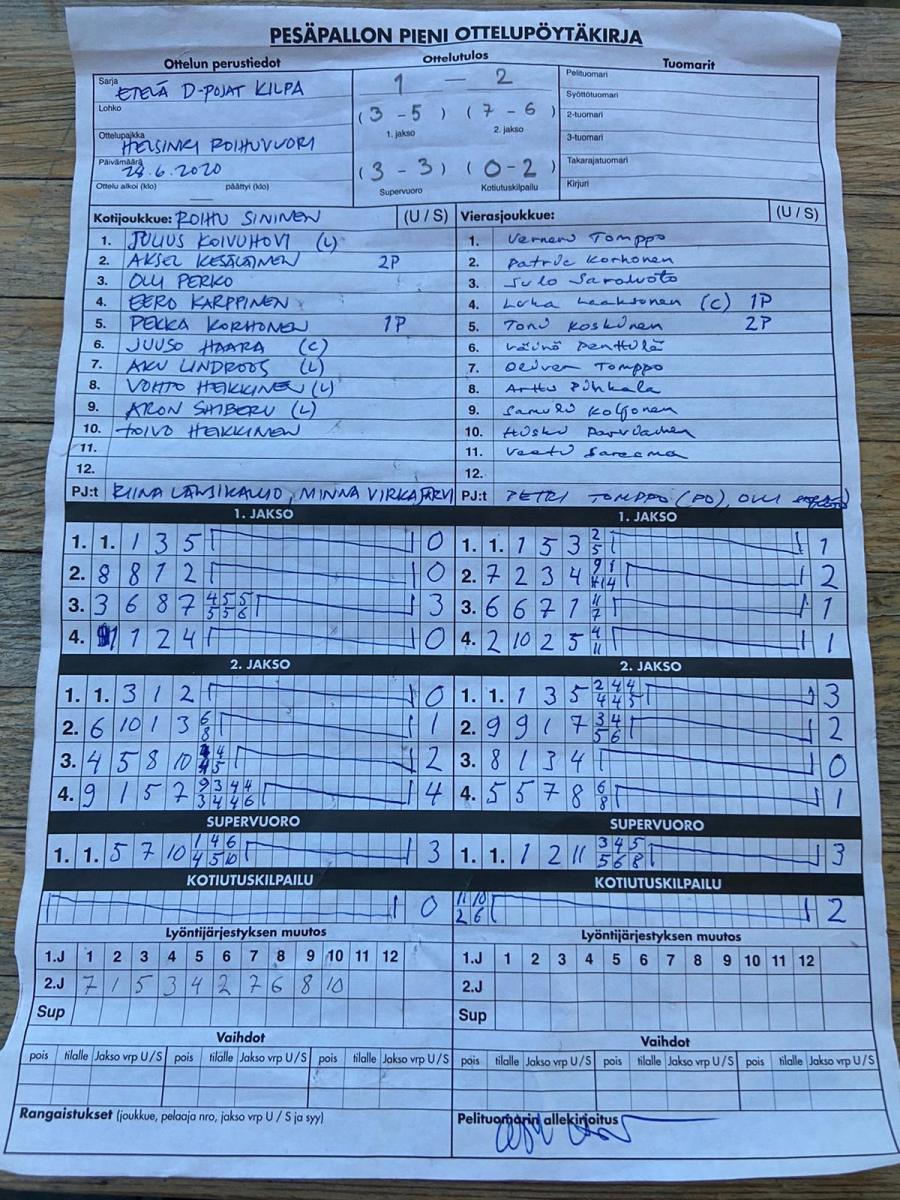 PESÄPALLON PIENI OTTELUPÖYTÄKIRJA
Ottelun perustiedot Ottelutulos Tuomarit
Sarja ETELÄ D-POJAT KILPA
Lohko
Ottelupaikka HELSINKI ROIHUVUORI
Päivämäärä 28.6.2020
Ottelu alkoi (klo) päättyi (klo)
1 — 2
(3 - 5) (7 - 6)
1. jakso 2. jakso
(3 - 3) (0 - 2)
Supervuoro Kotiutuskilpailu
Pelituomari
Syöttötuomari
2-tuomari
3-tuomari
Takarajatuomari
Kirjuri
Kotijoukkue: ROIHU SININEN (U / S)
1. JULIUS KOIVUHOVI (L)
2. AKSEL KESÄLÄINEN 2P
3. OLLI PERKO
4. EERO KARPPINEN
5. PEKKA KORHONEN 1P
6. JUUSO HAARA (C)
7. AKU LINDROOS (L)
8. VOHTO HEIKKINEN (L)
9. ARON SHIBERU (L)
10. TOIVO HEIKKINEN
11.
12.
PJ:t RIINA LÄNSIKALLIO, MINNA VIRKAJÄRVI
Vierasjoukkue: (U / S)
1. Verneri Tomppo
2. Patrik Korhonen
3. Sulo
4. Luka Laaksonen (C) 1P
5. Toni Koskinen 2P
6. Väinö Penttilä
7. Oliver Tomppo
8. Arttu Pihkala
9. Samuli Koljonen
10.
11. Veeti Sareema
12.
PJ:t PETRI TOMPPO (PO), OLLI
1. JAKSO
1. 1. 1 3 5 0
2. 8 8 1 2 0
3. 3 6 8 7 4 5 5 3
5 5 6
4. 1 1 2 4 0
1. JAKSO
1. 1. 1 5 3 2 1
5
2. 7 2 3 4 2
3. 6 6 7 1 11 1
7
4. 2 10 2 5 4 1
11
2. JAKSO
1. 1. 3 1 2 0
2. 6 10 1 3 6 1
8
3. 4 5 8 10 4 2
5
4. 9 1 5 7 9 3 4 4 4
3 4 4 6
2. JAKSO
1. 1. 1 3 5 2 4 4 3
4 4 5
2. 9 9 1 7 3 4 2
5 6
3. 8 1 3 4 0
4. 5 5 7 8 6 1
8
SUPERVUORO
1. 1. 5 7 10 1 4 6 3
4 5 10
SUPERVUORO
1. 1. 1 2 11 3 4 5 3
5 6 8
KOTIUTUSKILPAILU
0
KOTIUTUSKILPAILU
11 10 2
2 6
Lyöntijärjestyksen muutos
1.J 1 2 3 4 5 6 7 8 9 10 11 12
2.J 7 1 5 3 4 2 7 6 8 10
Sup
Lyöntijärjestyksen muutos
1.J 1 2 3 4 5 6 7 8 9 10 11 12
2.J
Sup
Vaihdot
pois tilalle Jakso vrp U / S pois tilalle Jakso vrp U / S pois tilalle Jakso vrp U / S
Vaihdot
pois tilalle Jakso vrp U / S pois tilalle Jakso vrp U / S pois tilalle Jakso vrp U / S
Rangaistukset (joukkue, pelaaja nro, jakso vrp U / S ja syy)
Pelituomarin allekirjoitus